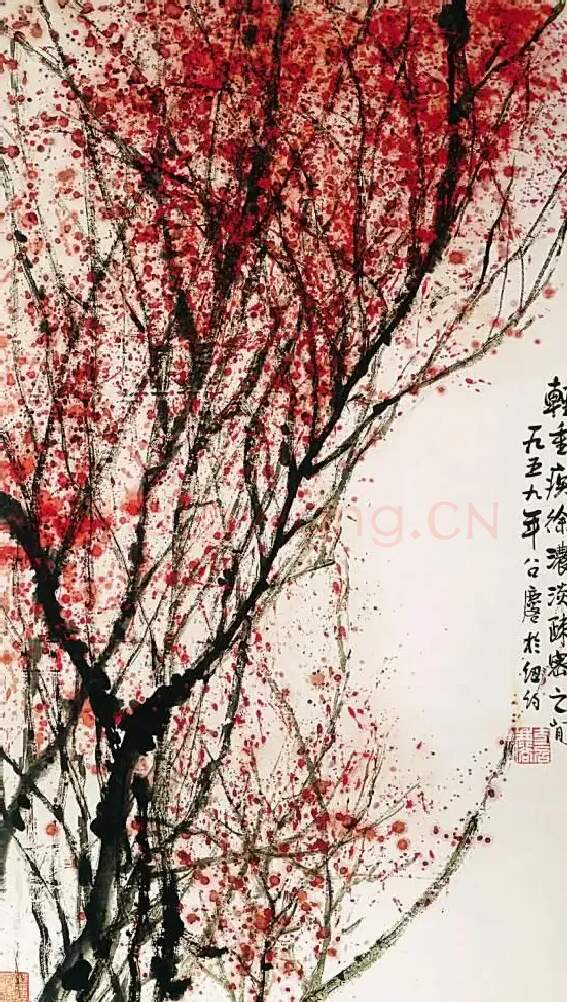 輕重疾徐濃淡疎密之間
一九五九年公慶於紐約
ng.CN